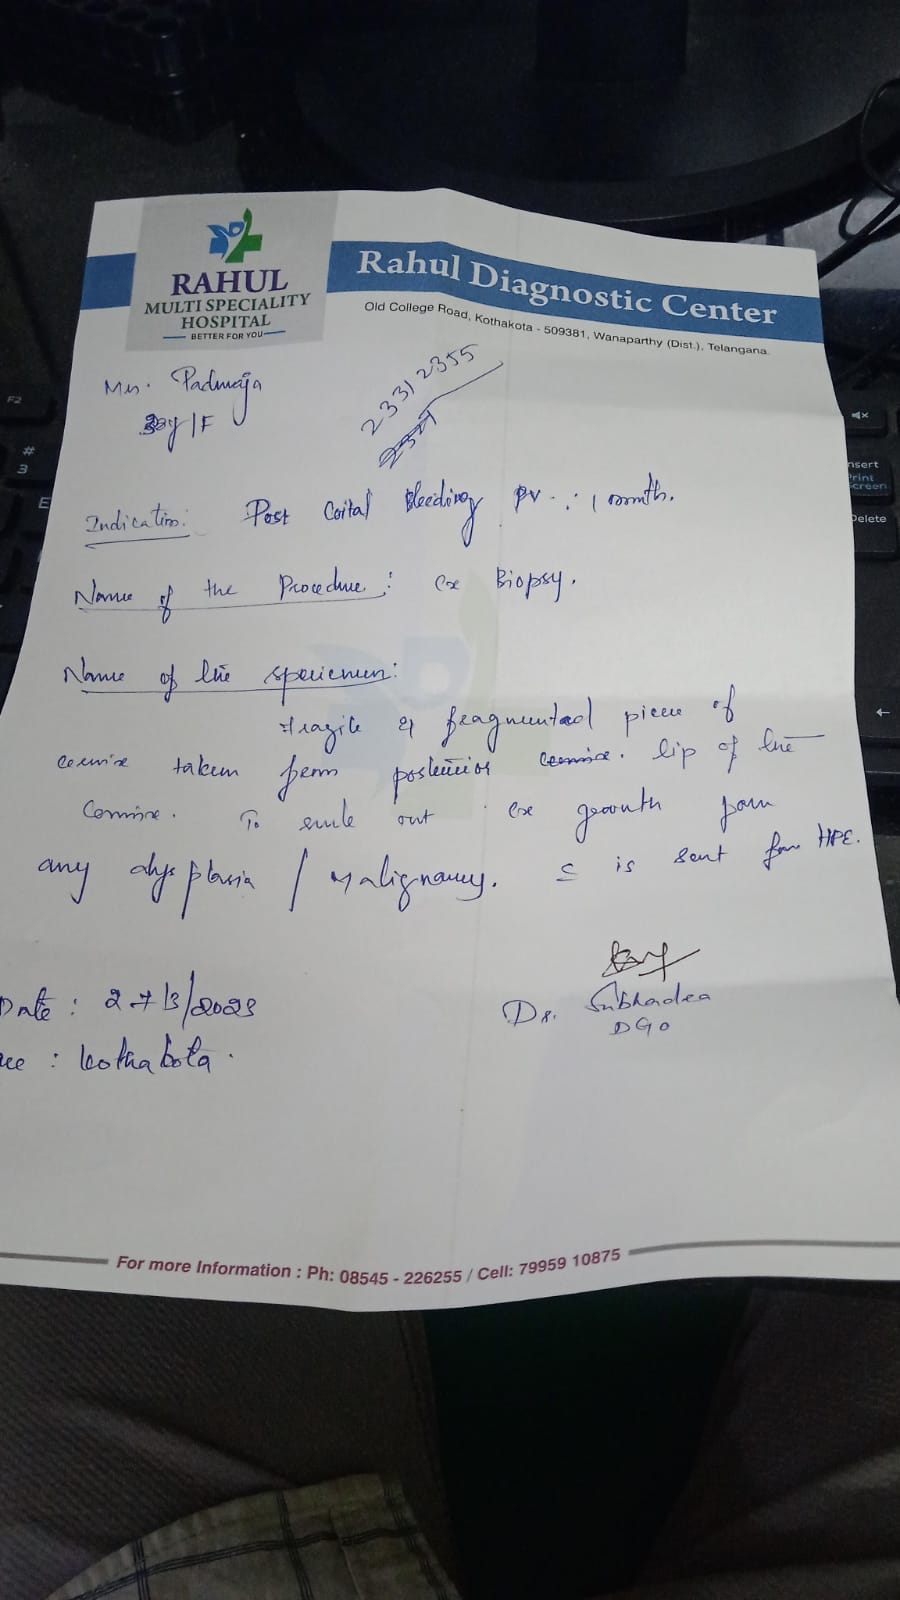 RAHUL
MULTI SPECIALITY
HOSPITAL
BETTER FOR YOU
Rahul Diagnostic Center
Old College Road, Kothakota - 509381, Wanaparthy (Dist.), Telangana.
Mrs. Padmaja
y/F
2331 2355
Indication: Post Coital Bleeding PV : 1 month.
Name of the Procedure: Cx Biopsy.
Name of the specimen:
fragile & fragmented piece of
cervix taken from posterior lip of the
Cervix. To rule out Cx growth for
any dysplasia / Malignancy. is sent for HPE.
Dr. Subhadra
DGO
Date: 27/3/2023
: Kothakota.
For more Information : Ph: 08545 - 226255 / Cell: 79959 10875
F2
#
3
E
Insert
Print
Screen
Delete